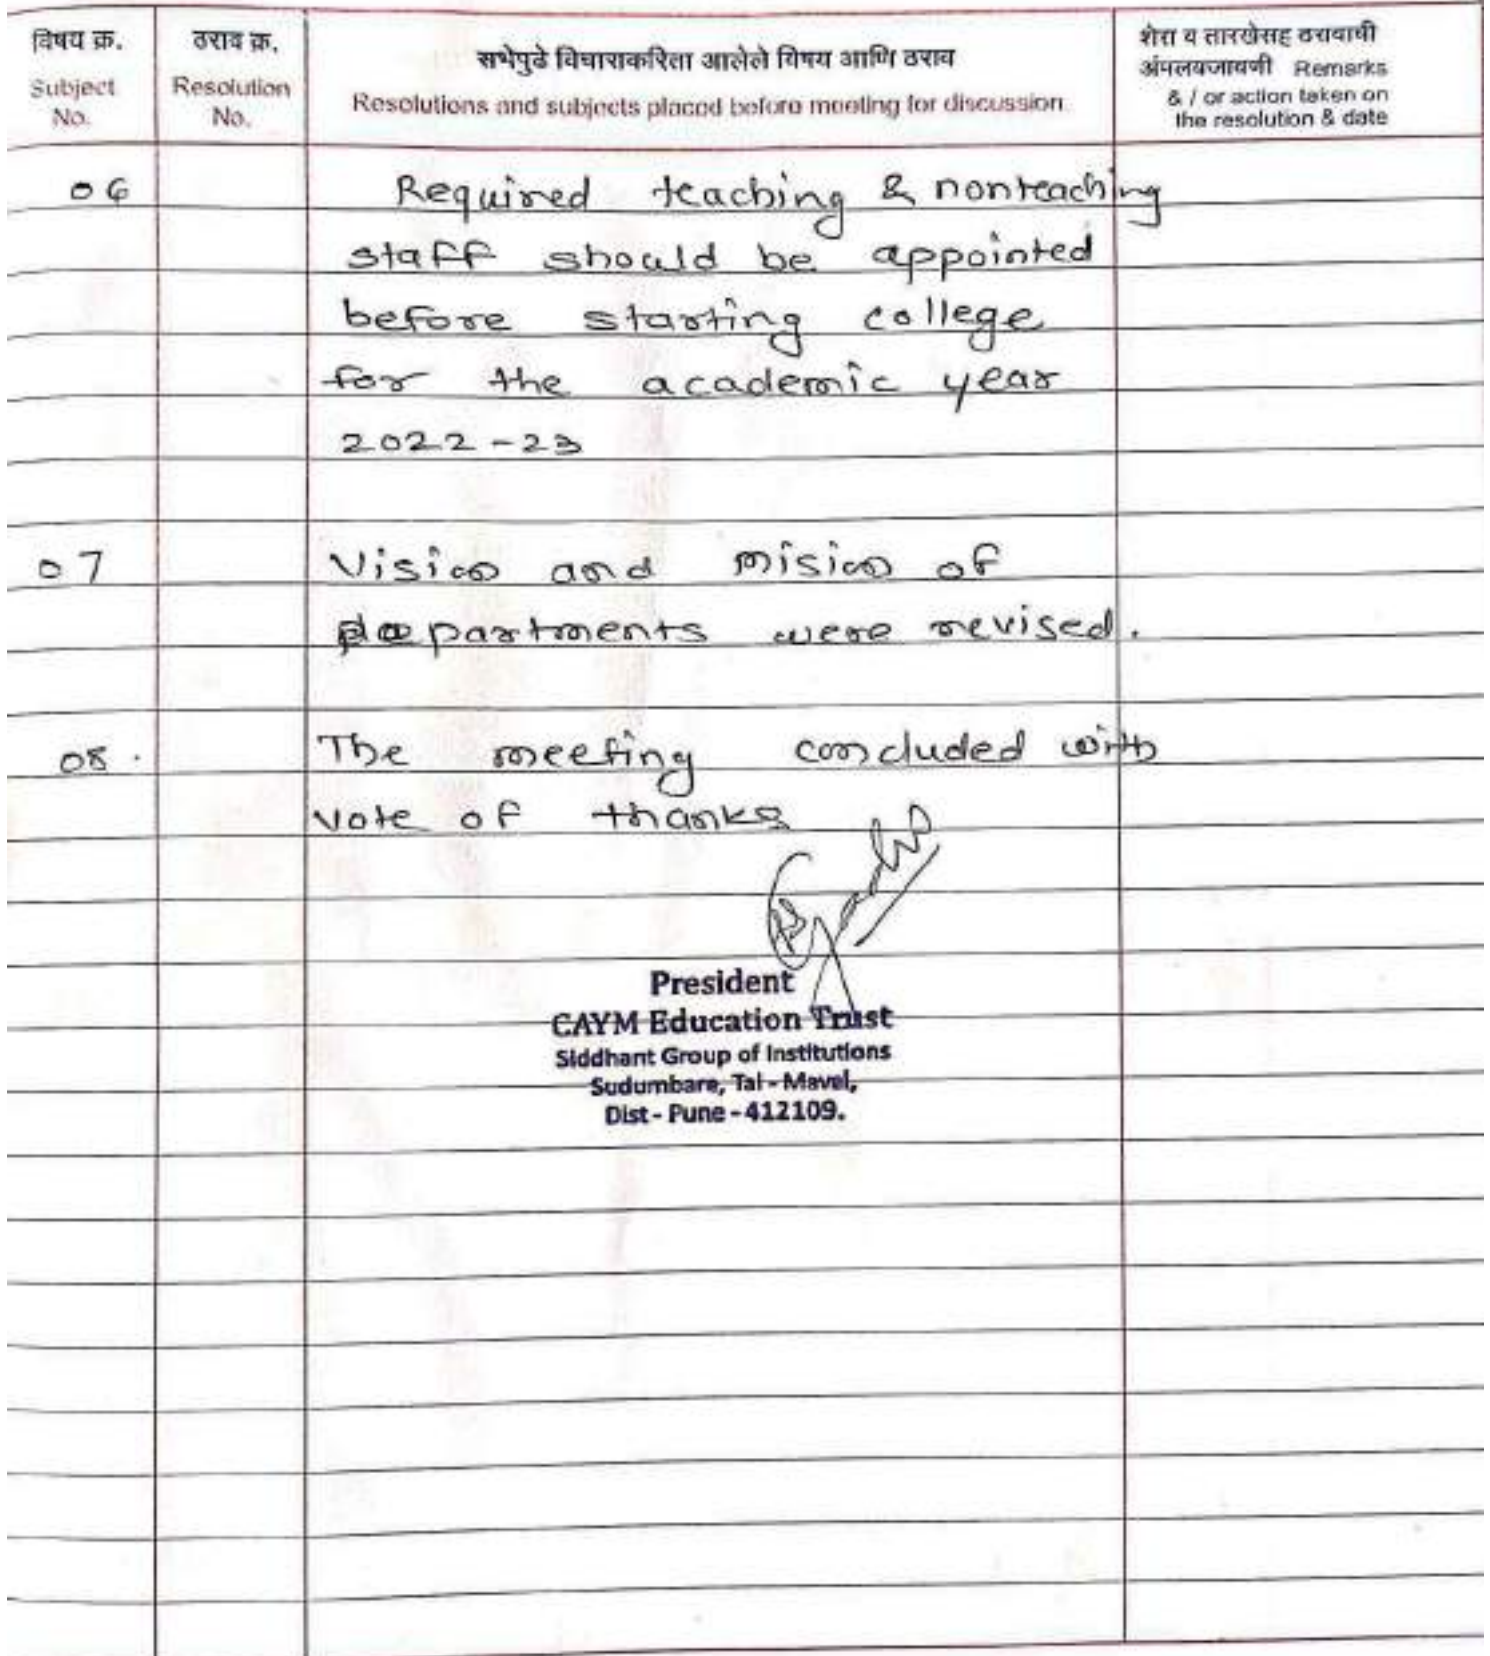 विषय क्र.
Subject
No.
ठराव क्र.
Resolution
No.
सभेपुढे विचाराकरिता आलेले विषय आणि ठराव
Resolutions and subjects placed before meeting for discussion.
शेरा व तारखेसह ठरावाची
अंमलबजावणी Remarks
& / or action taken on
the resolution & date
06 Required teaching & nonteaching
staff should be appointed
before starting college
for the academic year
2022-23
07 Vision and mision of
departments were revised.
08. The meeting concluded with
vote of thanks
President
CAYM Education Trust
Siddhant Group of Institutions
Sudumbare, Tal - Mavel,
Dist - Pune - 412109.